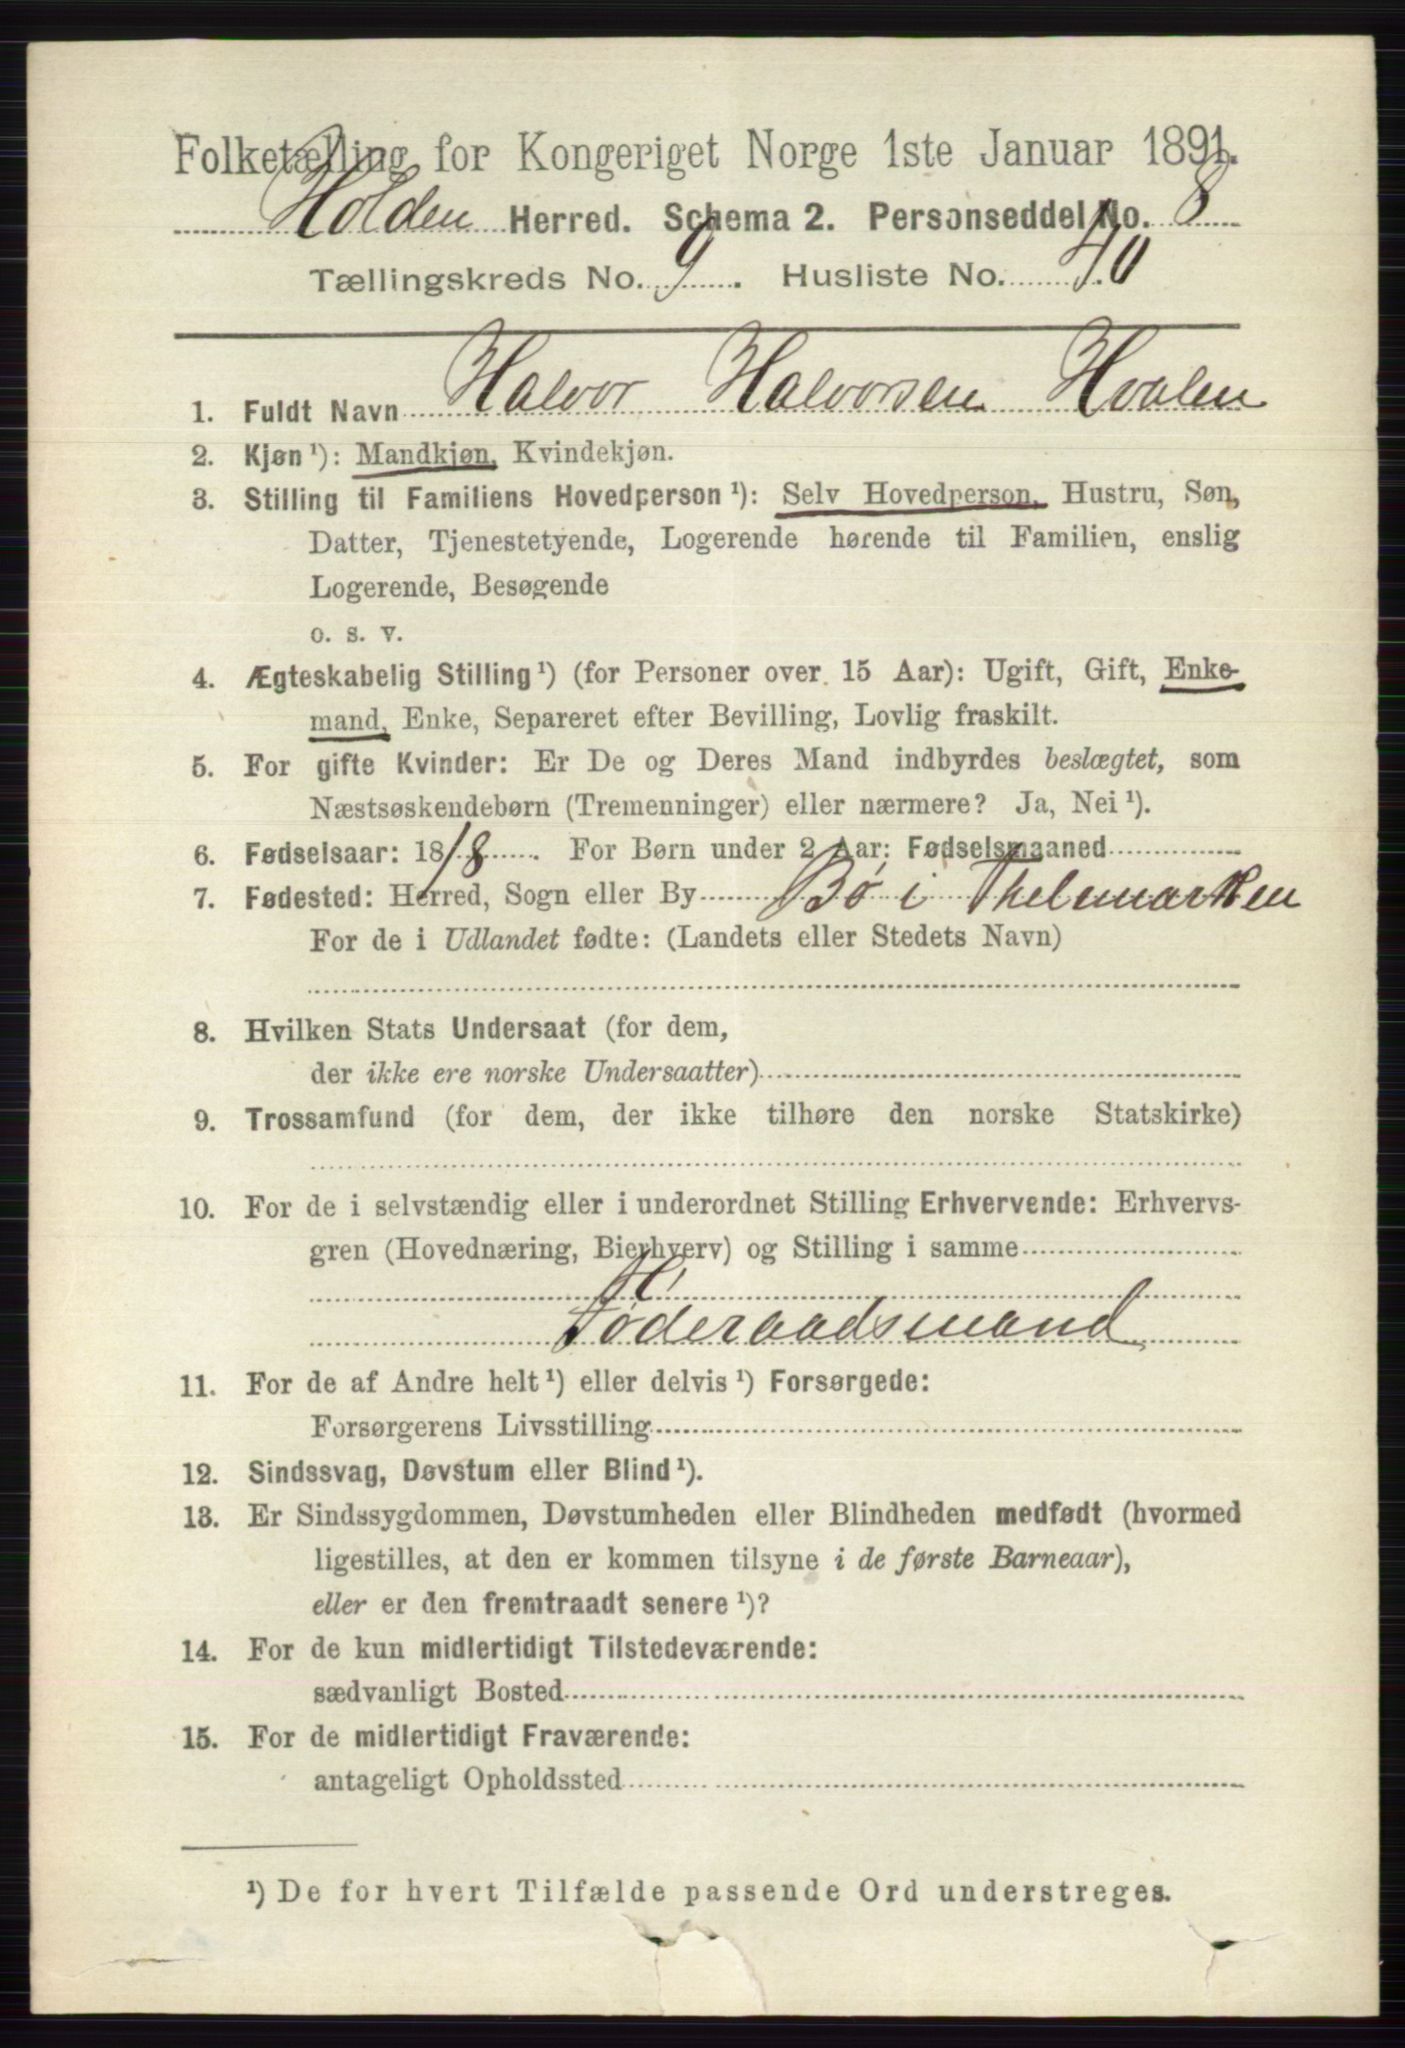 Folketælling for Kongeriget Norge 1ste Januar 1891.
Holden Herred. Schema 2. Personseddel No. 8
Tællingskreds No. 9. Husliste No. 40
1. Fuldt Navn Halvor Halvorsen Hvalen
2. Kjøn ¹): Mandkjøn, Kvindekjøn.
3. Stilling til Familiens Hovedperson ¹): Selv Hovedperson, Hustru, Søn,
Datter, Tjenestetyende, Logerende hørende til Familien, enslig
Logerende, Besøgende
o. s. v.
4. Ægteskabelig Stilling ¹) (for Personer over 15 Aar): Ugift, Gift, Enke-
mand, Enke, Separeret efter Bevilling, Lovlig fraskilt.
5. For gifte Kvinder: Er De og Deres Mand indbyrdes beslægtet, som
Næstsøskendebørn (Tremenninger) eller nærmere? Ja, Nei ¹).
6. Fødselsaar: 1818. For Børn under 2 Aar: Fødselsmaaned
7. Fødested: Herred, Sogn eller By Bø i Thelemarken
For de i Udlandet fødte: (Landets eller Stedets Navn)
8. Hvilken Stats Undersaat (for dem,
der ikke ere norske Undersaatter)
9. Trossamfund (for dem, der ikke tilhøre den norske Statskirke)
10. For de i selvstændig eller i underordnet Stilling Erhvervende: Erhvervs-
gren (Hovednæring, Bierhverv) og Stilling i samme
Føderaadsmand
11. For de af Andre helt ¹) eller delvis ¹) Forsørgede:
Forsørgerens Livsstilling
12. Sindssvag, Døvstum eller Blind ¹).
13. Er Sindssygdommen, Døvstumheden eller Blindheden medfødt (hvormed
ligestilles, at den er kommen tilsyne i de første Barneaar),
eller er den fremtraadt senere ¹)?
14. For de kun midlertidigt Tilstedeværende:
sædvanligt Bosted
15. For de midlertidigt Fraværende:
antageligt Opholdssted
¹) De for hvert Tilfælde passende Ord understreges.